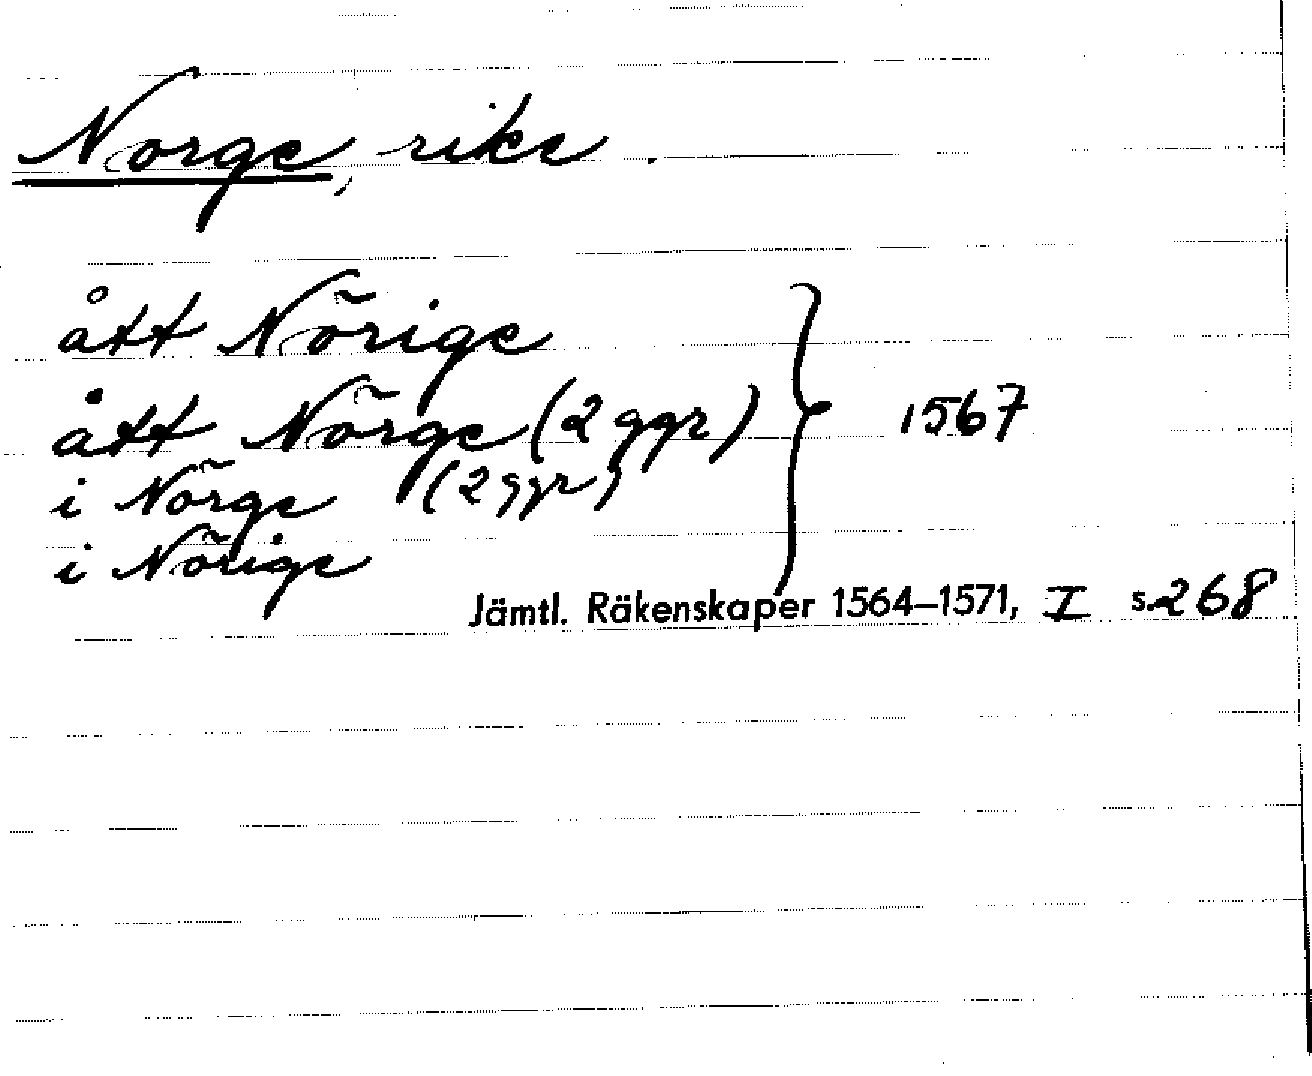 Norge, rike.
ått Nõrige
ått Nõrge (2 ggr) } 1567
i Nõrge (2 ggr)
i Nõrige
Jämtl. Räkenskaper 1564–1571, I s. 268